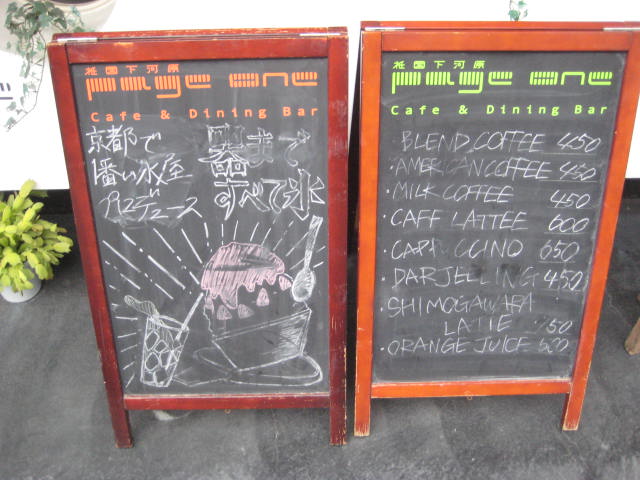 祇園下河原
page one
Cafe & Dining Bar
京都で
1番い氷屋
プロデュース
器まで
すべて氷
祇園下河原
page one
Cafe & Dining Bar
BLEND COFFEE 450
・AMERICAN COFFEE 450
・MILK COFFEE 450
・CAFF LATTEE 600
・CAPPUCCINO 650
・DARJELLING 450
・SHIMOGAWARA
LATTE 750
・ORANGE JUICE 600